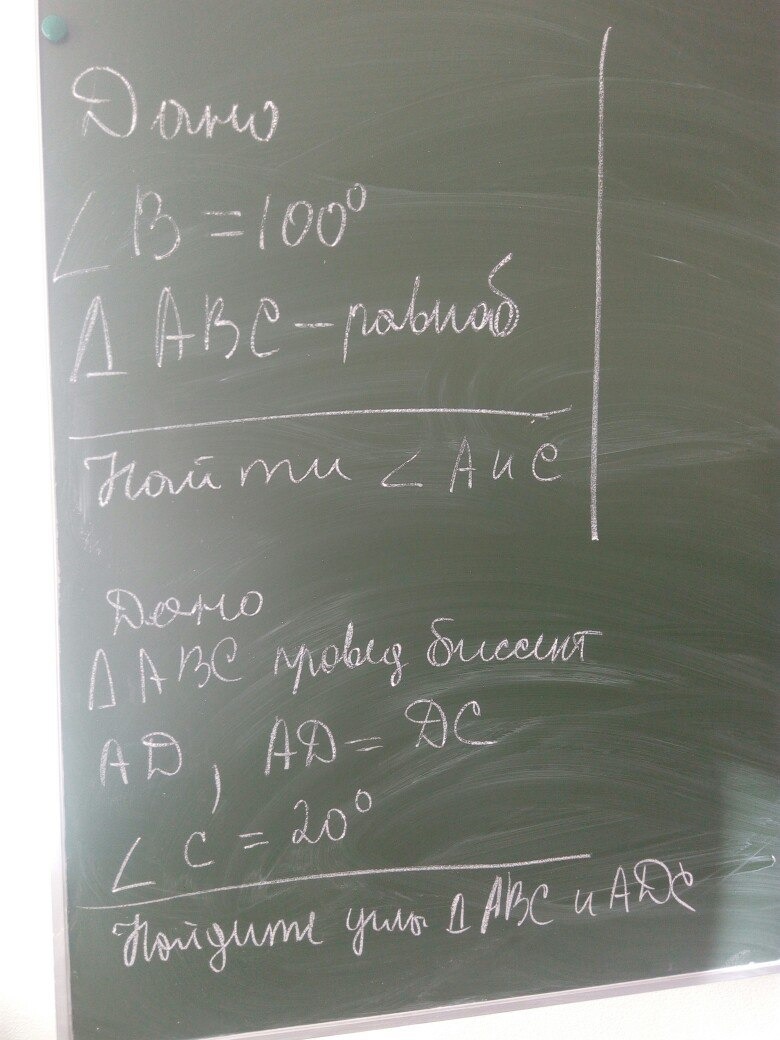 Дано
∠ B = 100°
Δ ABC – равноб
Найти ∠ A и C
Дано
Δ ABC провед биссект
AD, AD = DC
∠ C = 20°
Найдите углы Δ ABC и ADC